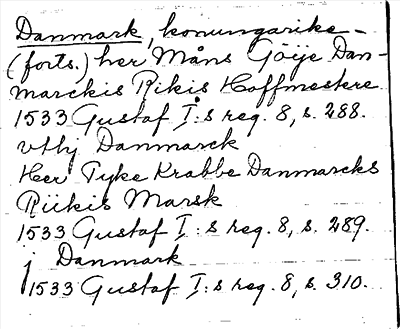 Danmark, konungarike -
(forts.) her Måns Göije Dan-
marckis Rikis Hoffmestere
1533 Gustaf I:s reg. 8, s. 288.
vthj Danmarck
Her Tyke Krabbe Danmarcks
Riikis Marsk
1533 Gustaf I:s reg. 8, s. 289.
j Danmark
1533 Gustaf I:s reg. 8, s. 310.